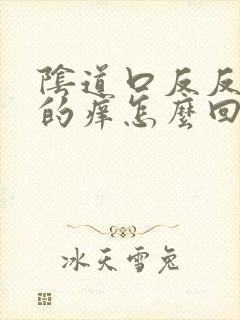 陰道口反反
的痒怎麼回
冰天雪兔